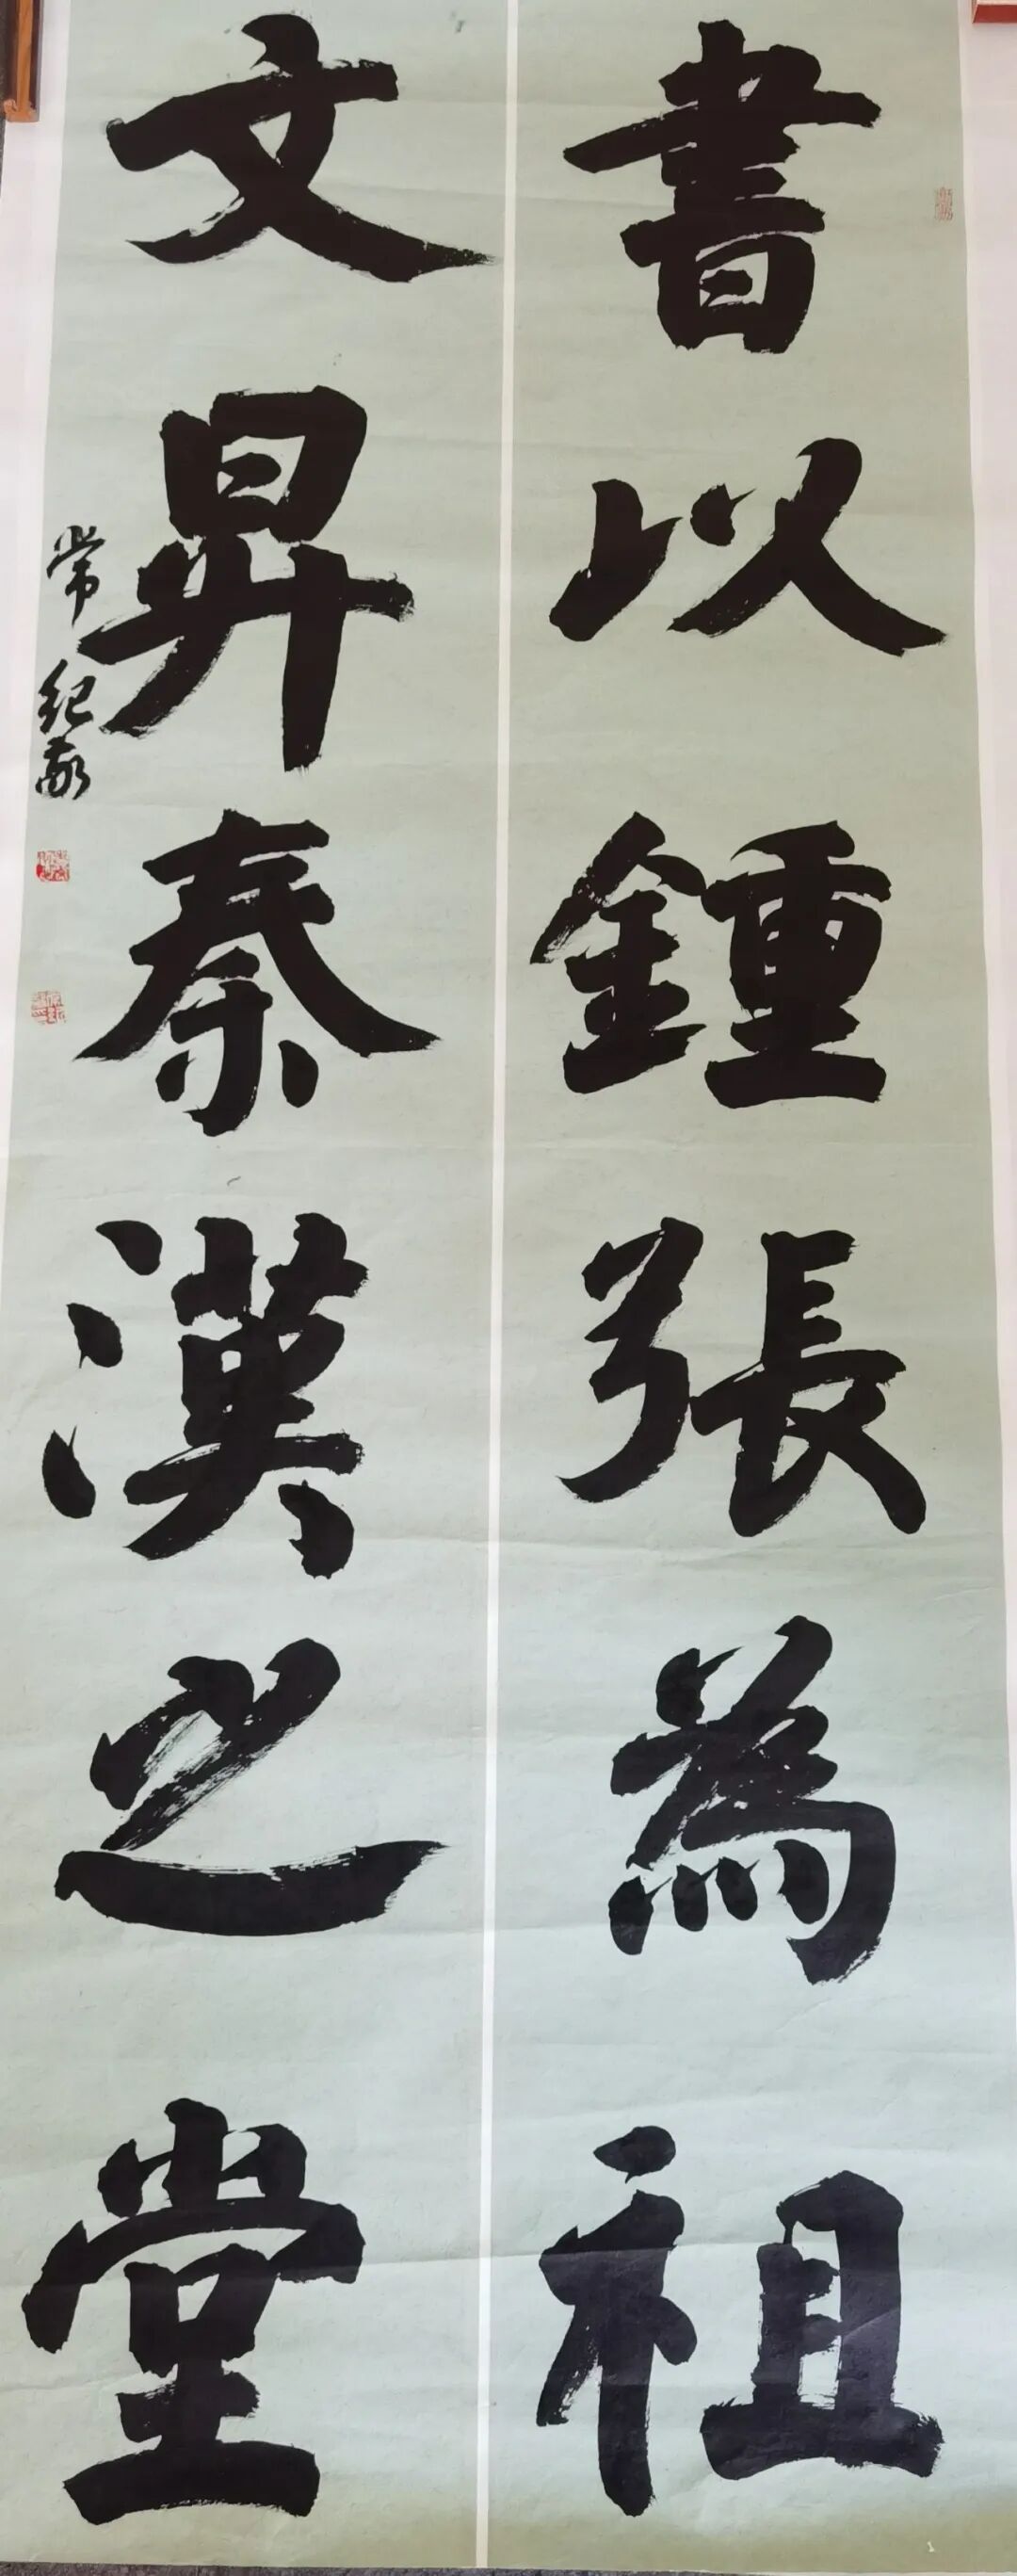 書以鍾張為祖
文昇秦漢之堂
常紀敬